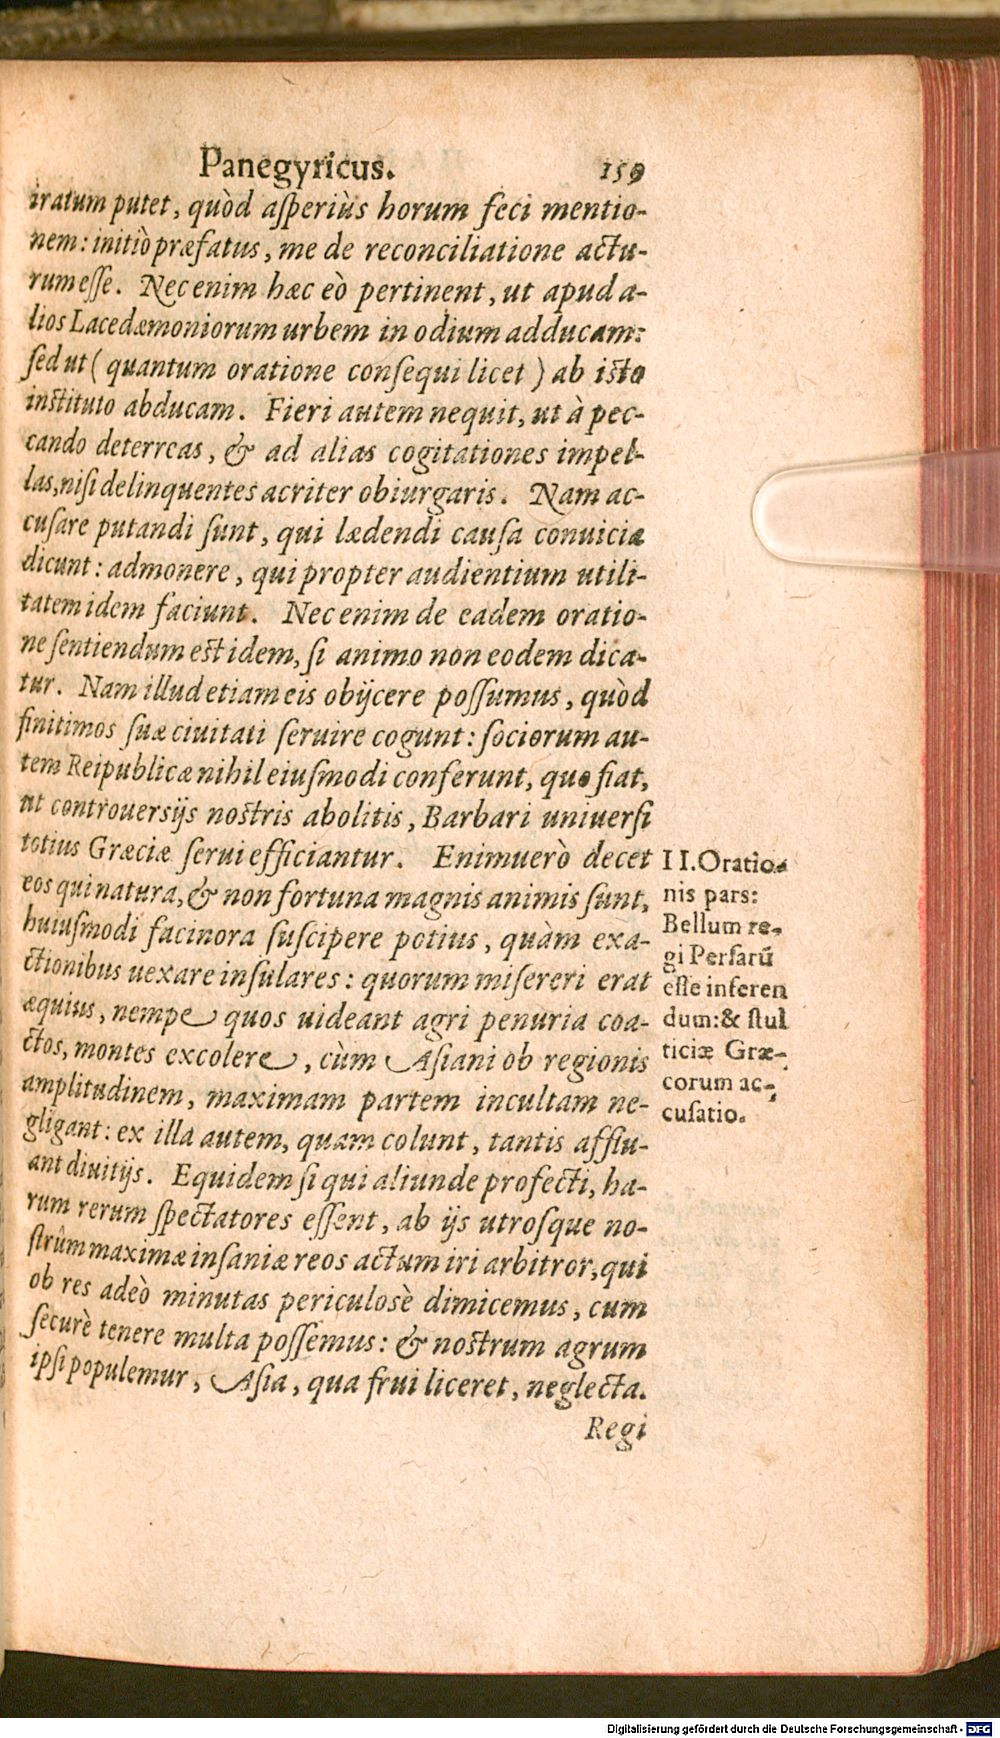 Panegyricus. 159
iratum putet, quòd aſperiùs horum feci mentio-
nem: initiò præfatus, me de reconciliatione actu-
rum eſſe. Nec enim hæc eò pertinent, ut apud a-
lios Lacedæmoniorum urbem in odium adducam:
ſed ut ( quantum oratione conſequi licet ) ab iſto
inſtituto abducam. Fieri autem nequit, ut à pec-
cando deterreas, & ad alias cogitationes impel-
las, niſi delinquentes acriter obiurgaris. Nam ac-
cuſare putandi ſunt, qui lædendi cauſa conuicia
dicunt: admonere, qui propter audientium utili-
tatem idem faciunt. Nec enim de eadem oratio-
ne ſentiendum eſt idem, ſi animo non eodem dica-
tur. Nam illud etiam eis obijcere poſſumus, quòd
finitimos ſuæ ciuitati ſeruire cogunt: ſociorum au-
tem Reipublicæ nihil eiuſmodi conferunt, quo fiat,
ut controuersijs noſtris abolitis, Barbari uniuerſi
totius Græciæ ſerui efficiantur. Enimuerò decet
eos qui natura, & non fortuna magnis animis ſunt,
huiuſmodi facinora ſuſcipere potius, quàm exa-
ctionibus uexare inſulares: quorum miſereri erat
æquius, nempe quos uideant agri penuria coa-
ctos, montes excolere, cùm Aſiani ob regionis
amplitudinem, maximam partem incultam ne-
gligant: ex illa autem, quam colunt, tantis afflu-
ant diuitijs. Equidem ſi qui aliunde profecti, ha-
rum rerum ſpectatores eſſent, ab ijs utroſque no-
ſtrûm maximæ inſaniæ reos actum iri arbitror, qui
ob res adeò minutas periculosè dimicemus, cum
ſecurè tenere multa poſſemus: & noſtrum agrum
ipſi populemur, Aſia, qua frui liceret, neglecta.
Regi
II. Oratio-
nis pars:
Bellum re-
gi Perſarū
eſſe inferen
dum: & ſtul
ticiæ Græ-
corum ac-
cuſatio.
Digitalisierung gefördert durch die Deutsche Forschungsgemeinschaft - DFG